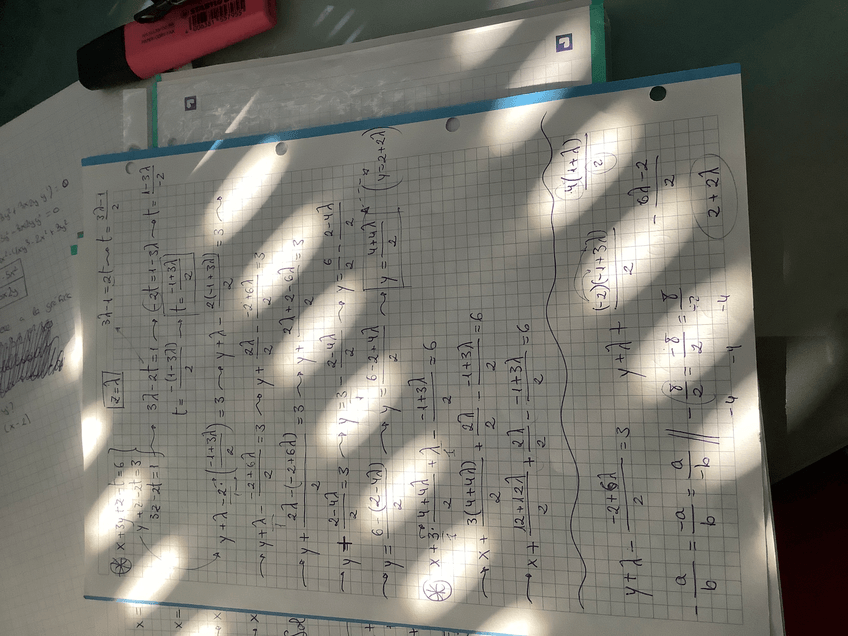 x + 3y + z - t = 6
y + z - 2t = 3
3z - 2t = 1
z = λ
3λ - 1 = 2t → t = (3λ - 1)/2
→ 3λ - 2t = 1 → (-2t = 1 - 3λ → t = (1 - 3λ)/-2
t = -(1 - 3λ)/2 → t = (-1 + 3λ)/2
→ y + λ - 2·((-1 + 3λ)/2) = 3 → y + λ - 2(-1 + 3λ)/2 = 3 →
→ y + λ - (-2 + 6λ)/2 = 3 → y + 2λ/2 - (-2 + 6λ)/2 = 3
→ y + (2λ - (-2 + 6λ))/2 = 3 → y + (2λ + 2 - 6λ)/2 = 3
→ y + (2 - 4λ)/2 = 3 → y = 3 - (2 - 4λ)/2 → y = 6/2 - (2 - 4λ)/2
→ y = (6 - (2 - 4λ))/2 → y = (6 - 2 + 4λ)/2 → y = (4 + 4λ)/2 → (y = 2 + 2λ)
x + 3·(4 + 4λ)/2 + λ - (-1 + 3λ)/2 = 6
→ x + 3(4 + 4λ)/2 + 2λ/2 - (-1 + 3λ)/2 = 6
→ x + (12 + 12λ)/2 + 2λ/2 - (-1 + 3λ)/2 = 6
y + λ - (-2 + 6λ)/2 = 3
y + λ +
(-2)(-1 + 3λ)/2
4(1 + λ)/2
- (6λ - 2)/2
- a/b = -a/b = a/-b // - 8/2 = -8/2 = 8/-2
-4 -4 -4
2 + 2λ
(x - 2)